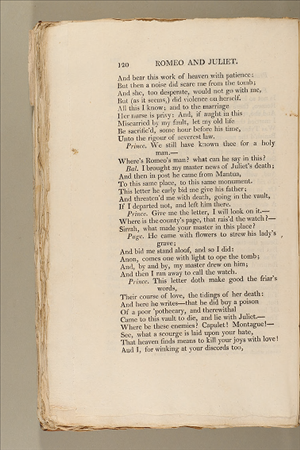 120 ROMEO AND JULIET.
And bear this work of heaven with patience:
But then a noise did scare me from the tomb;
And she, too desperate, would not go with me,
But (as it seems,) did violence on herself.
All this I know; and to the marriage
Her nurse is privy: And, if aught in this
Miscarried by my fault, let my old life
Be sacrific'd, some hour before his time,
Unto the rigour of severest law.
Prince. We still have known thee for a holy
man.—
Where's Romeo's man? what can he say in this?
Bal. I brought my master news of Juliet's death;
And then in post he came from Mantua,
To this same place, to this same monument.
This letter he early bid me give his father;
And threaten'd me with death, going in the vault,
If I departed not, and left him there.
Prince. Give me the letter, I will look on it.—
Where is the county's page, that rais'd the watch?—
Sirrah, what made your master in this place?
Page. He came with flowers to strew his lady's
grave;
And bid me stand aloof, and so I did:
Anon, comes one with light to ope the tomb;
And, by and by, my master drew on him;
And then I ran away to call the watch.
Prince. This letter doth make good the friar's
words,
Their course of love, the tidings of her death:
And here he writes—that he did buy a poison
Of a poor 'pothecary, and therewithal
Came to this vault to die, and lie with Juliet.—
Where be these enemies? Capulet! Montague!—
See, what a scourge is laid upon your hate,
That heaven finds means to kill your joys with love!
And I, for winking at your discords too,